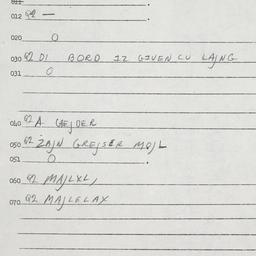 012 92 —
020 0
030 92 DI BORD IZ GIVEN CU LAJNG
031 0
040 92 A GEJDER
050 92 ZAJN GREJSER MOJL
051 0
060 92 MAJLXL,
070 92 MAJLELAX